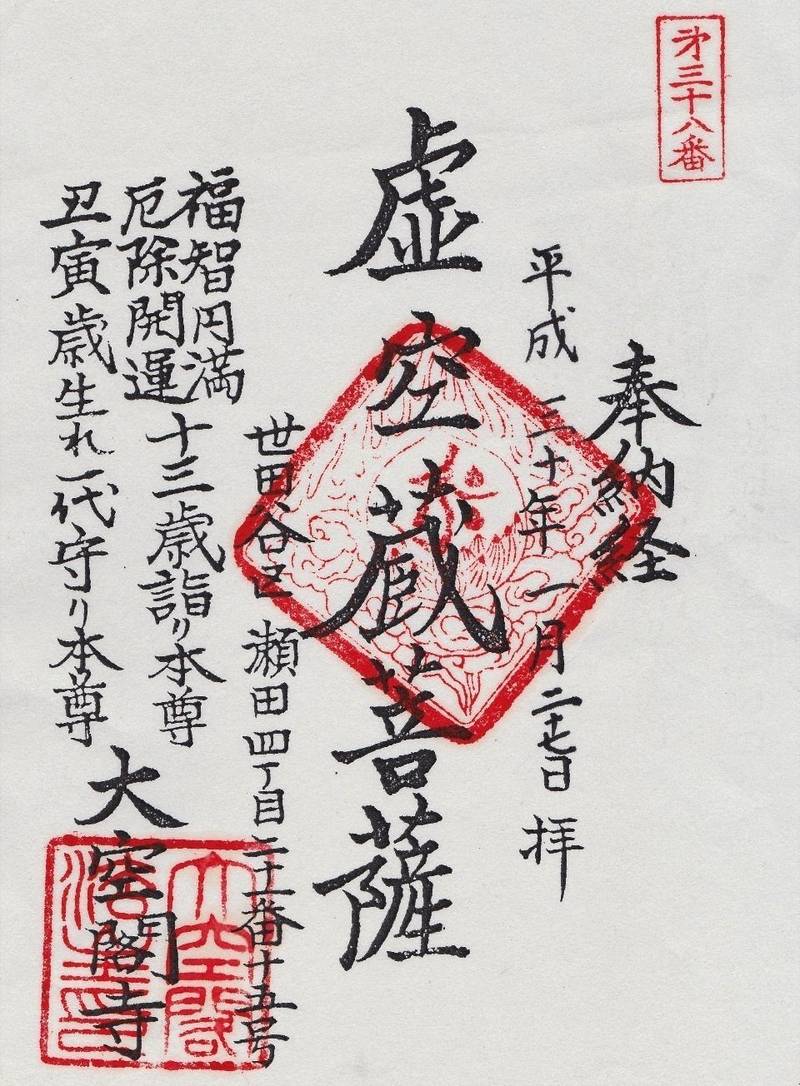 第三十八番
奉納経
平成 三十年 一月 二十七日 拝
虚空蔵菩薩
世田谷区 瀬田四丁目二十一番十五号
福智円満
厄除開運 十三歳詣り本尊
丑寅歳生れ一代守り本尊
大空閣寺